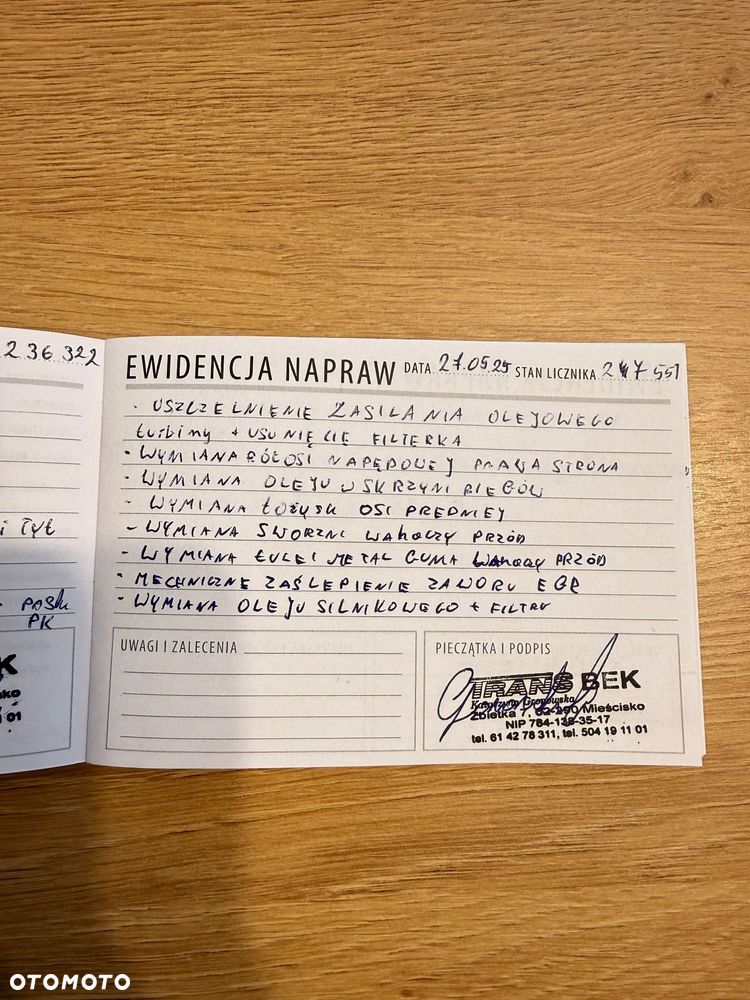 236 322
i TYŁ
PASK
PK
K
sko
01
EWIDENCJA NAPRAW DATA 27.05.25 STAN LICZNIKA 247 551
· USZCZELNIENIE ZASILANIA OLEJOWEGO
turbiny + USUNIĘCIE FILTERKA
- WYMIANA PÓŁOSI NAPĘDOWEJ PRAWA STRONA
- WYMIANA OLEJU W SKRZYNI BIEGÓW
- WYMIANA ŁOŻYSK OSI PREDNIEJ
- WYMIANA SWORZNI WAHACZY PRZÓD
- WYMIANA TULEI METAL GUMA WAHACZY PRZÓD
· MECHANICZNE ZAŚLEPIENIE ZAWORU EGR
- WYMIANA OLEJU SILNIKOWEGO + FILTRY
UWAGI I ZALECENIA
PIECZĄTKA I PODPIS
TRANS BEK
Katarzyna Gronowska
Zbietka 7, 62-290 Mieścisko
NIP 784-139-35-17
tel. 61 42 78 311, tel. 504 19 11 01
OTOMOTO